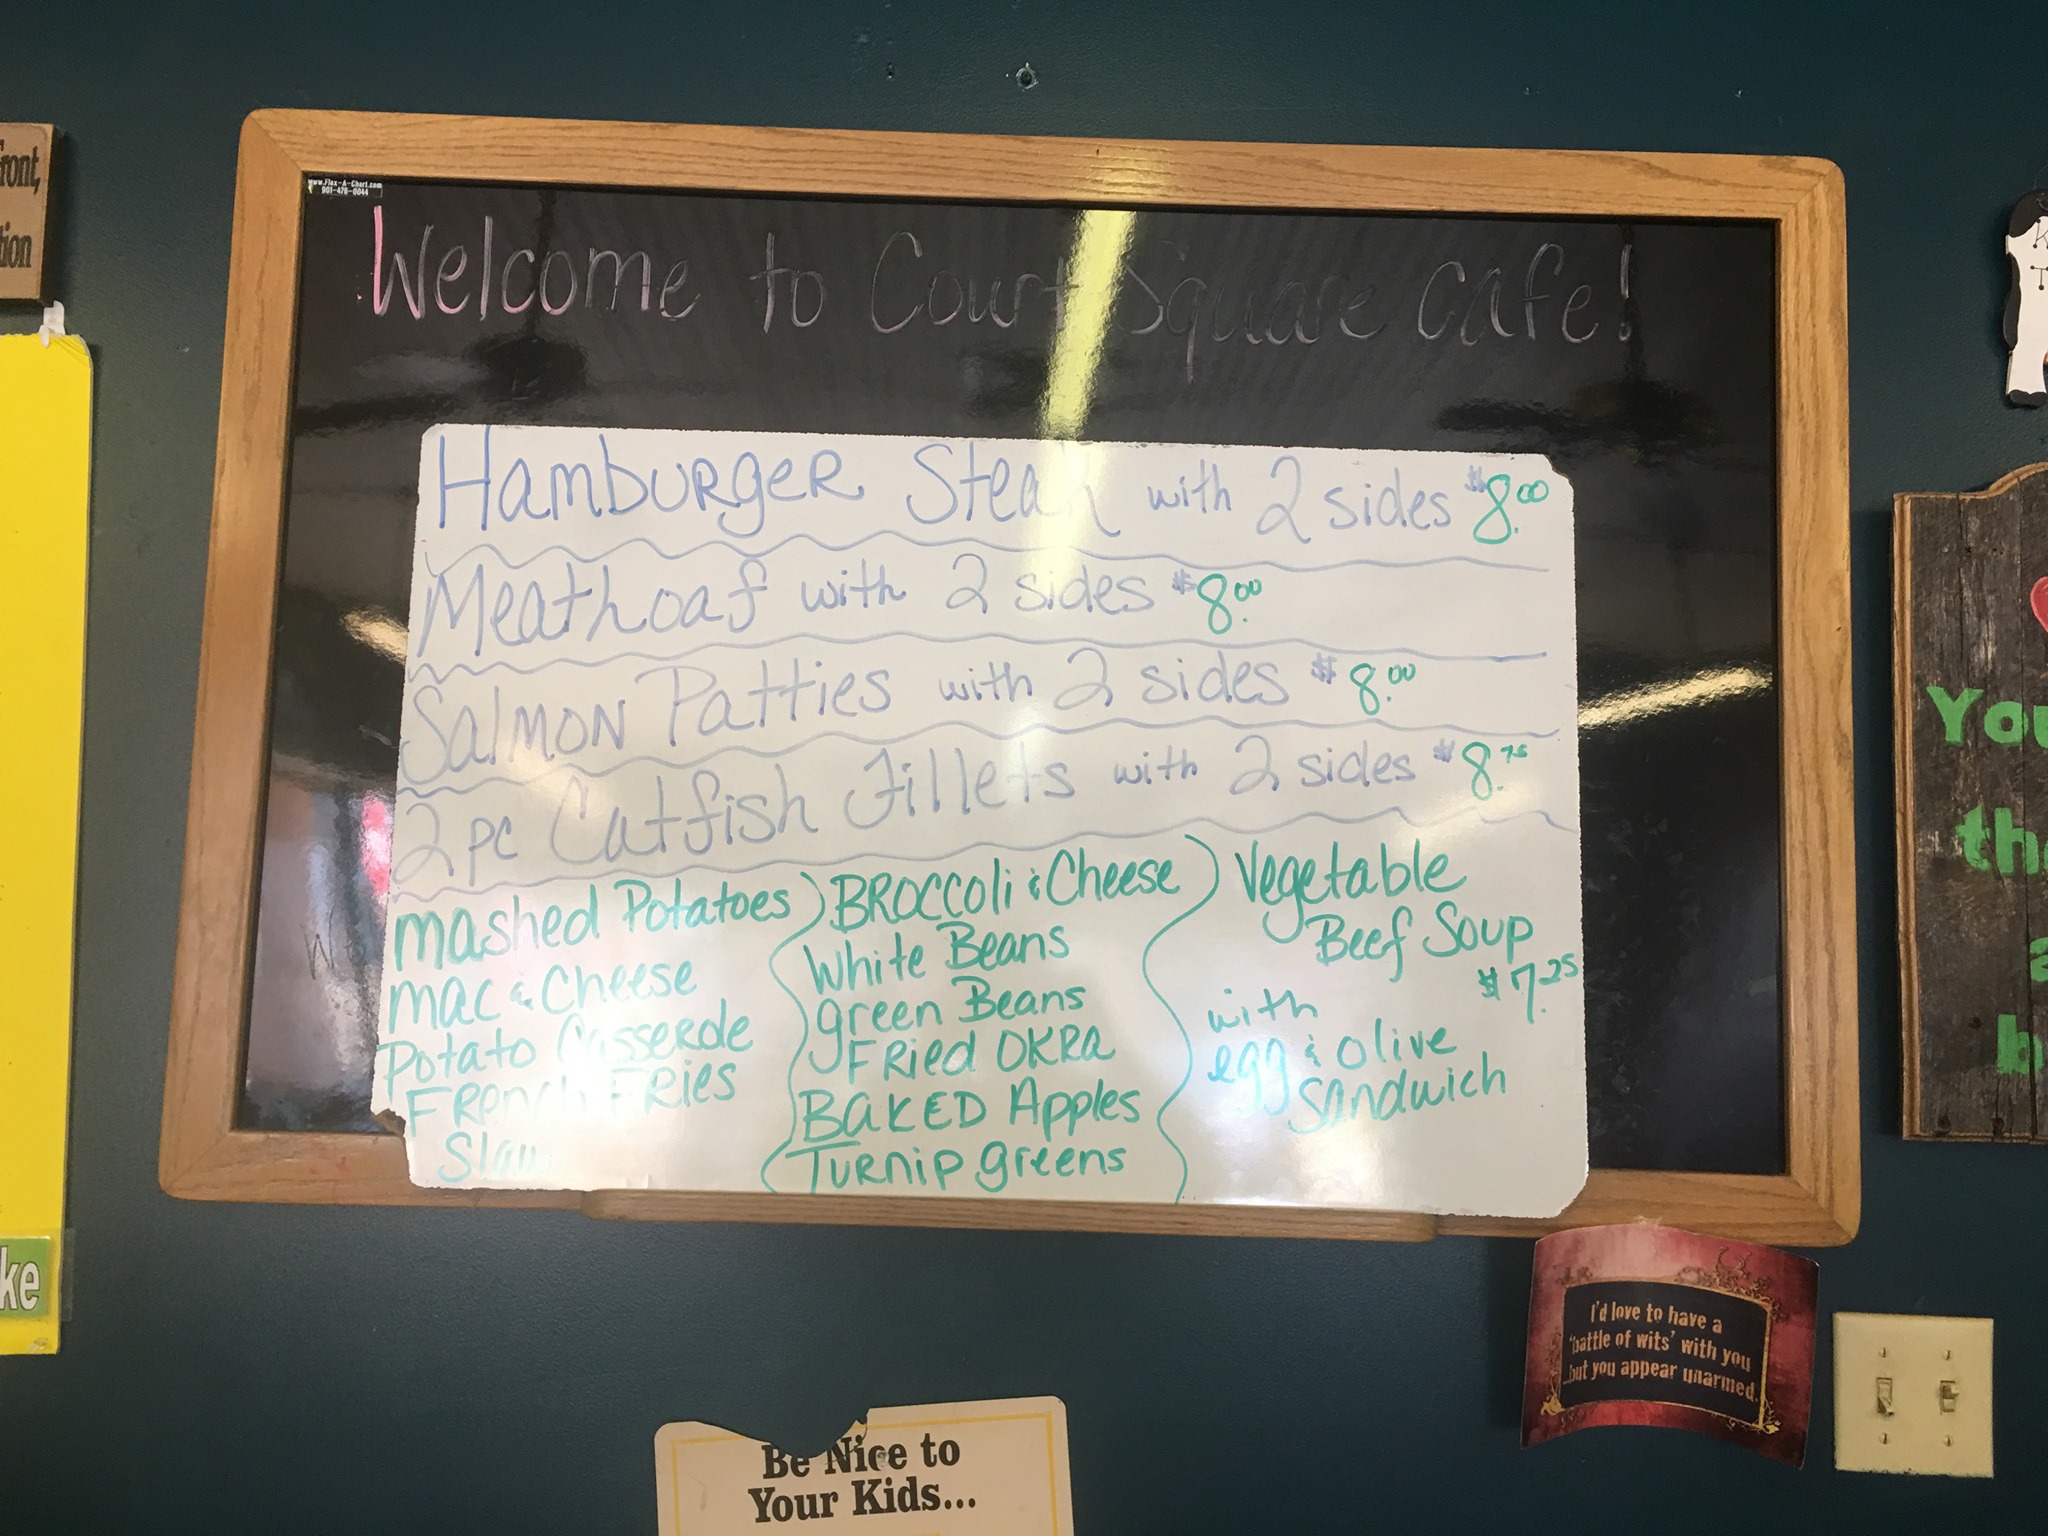 ront,
tion
www.Flex-A-Chart.com
901-476-0044
Welcome to Court Square Cafe!
Hamburger Steak with 2 sides $8.00
Meathoaf with 2 sides $8.00
Salmon Patties with 2 sides $8.00
2 pc Catfish Fillets with 2 sides $8.75
Mashed Potatoes
Mac & Cheese
Potato Casserole
French Fries
Slaw
Broccoli & Cheese
White Beans
green Beans
Fried Okra
Baked Apples
Turnip greens
Vegetable
Beef Soup
$7.25
with
egg & olive
Sandwich
K
T
You
th
a
b
ke
I'd love to have a
'battle of wits' with you
...but you appear unarmed.
Be Nice to
Your Kids...